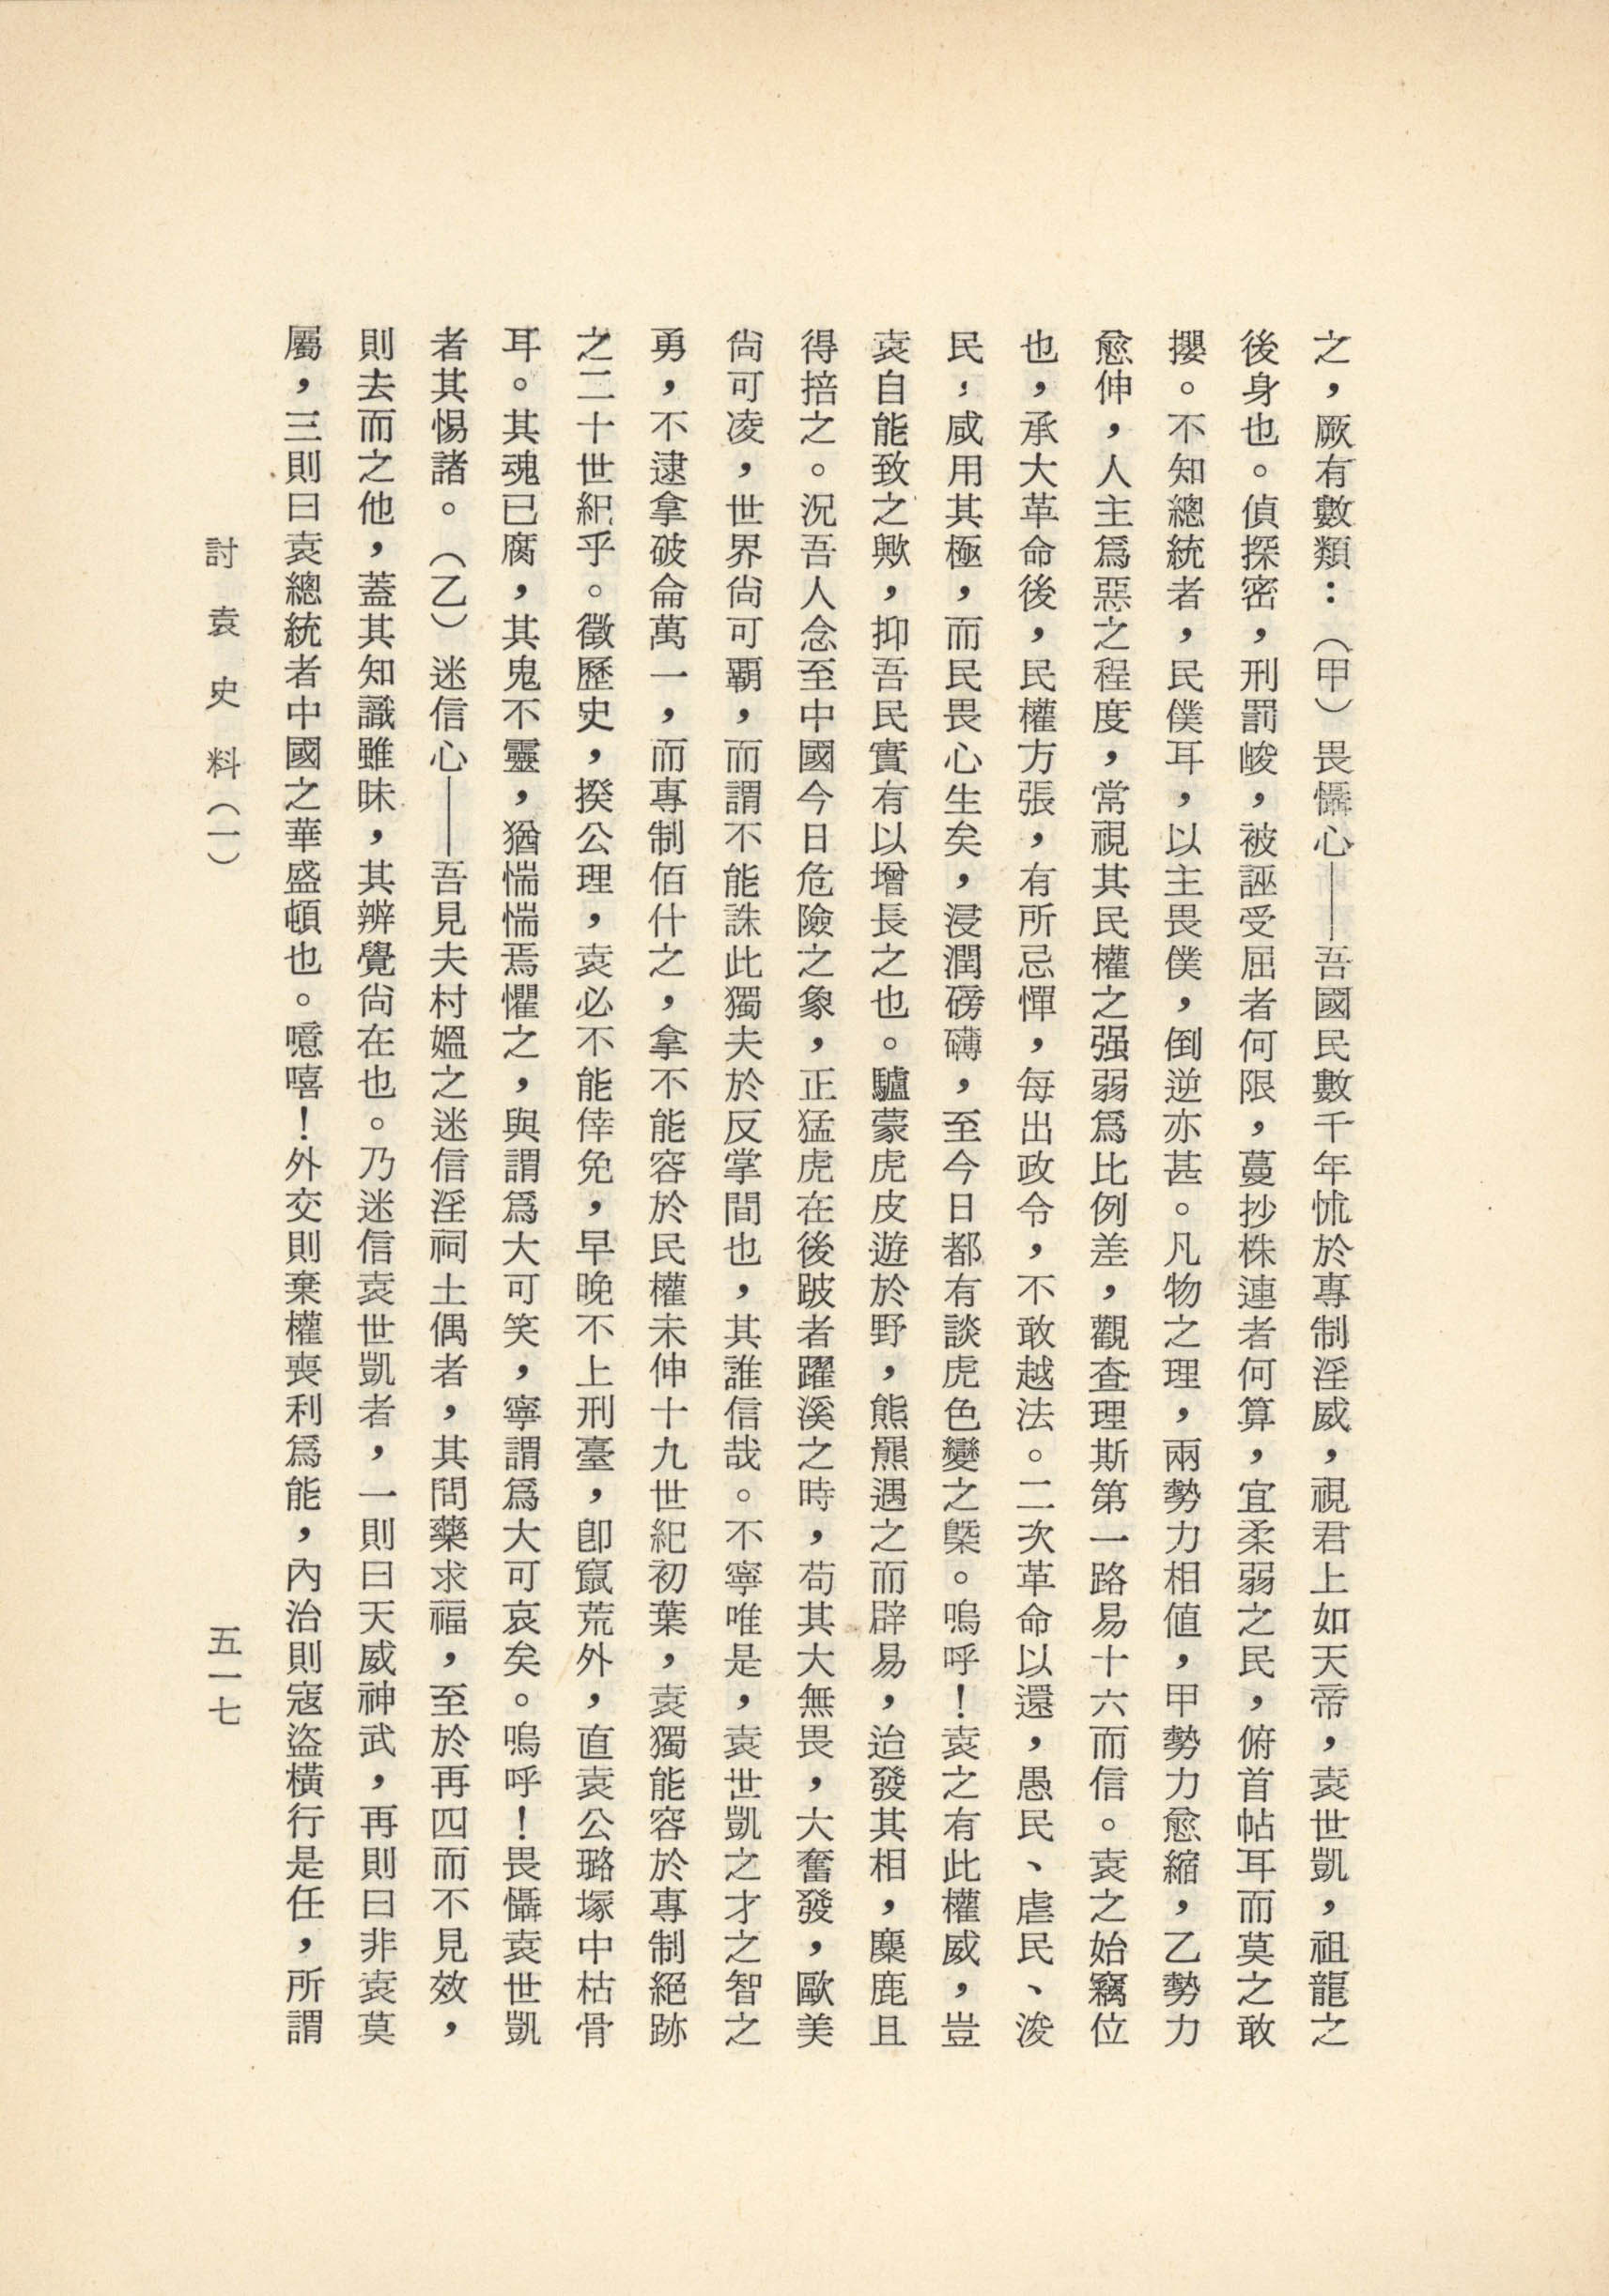 之，厥有數類：（甲）畏懾心——吾國民數千年怵於專制淫威，視君上如天帝，袁世凱，祖龍之
後身也。偵探密，刑罰峻，被誣受屈者何限，蔓抄株連者何算，宜柔弱之民，俯首帖耳而莫之敢
攖。不知總統者，民僕耳，以主畏僕，倒逆亦甚。凡物之理，兩勢力相値，甲勢力愈縮，乙勢力
愈伸，人主爲惡之程度，常視其民權之强弱爲比例差，觀查理斯第一路易十六而信。袁之始竊位
也，承大革命後，民權方張，有所忌憚，每出政令，不敢越法。二次革命以還，愚民、虐民、浚
民，咸用其極，而民畏心生矣，浸潤磅礴，至今日都有談虎色變之槩。嗚呼！袁之有此權威，豈
袁自能致之歟，抑吾民實有以增長之也。驢蒙虎皮遊於野，熊羆遇之而辟易，迨發其相，麋鹿且
得掊之。況吾人念至中國今日危險之象，正猛虎在後跛者躍溪之時，苟其大無畏，大奮發，歐美
尙可凌，世界尙可覇，而謂不能誅此獨夫於反掌間也，其誰信哉。不寧唯是，袁世凱之才之智之
勇，不逮拿破侖萬一，而專制佰什之，拿不能容於民權未伸十九世紀初葉，袁獨能容於專制絕跡
之二十世紀乎。徵歷史，揆公理，袁必不能倖免，早晚不上刑臺，卽竄荒外，直袁公璐塚中枯骨
耳。其魂已腐，其鬼不靈，猶惴惴焉懼之，與謂爲大可笑，寧謂爲大可哀矣。嗚呼！畏懾袁世凱
者其惕諸。（乙）迷信心——吾見夫村媼之迷信淫祠土偶者，其問藥求福，至於再四而不見效，
則去而之他，蓋其知識雖昧，其辨覺尙在也。乃迷信袁世凱者，一則曰天威神武，再則曰非袁莫
屬，三則曰袁總統者中國之華盛頓也。噫嘻！外交則棄權喪利爲能，內治則寇盜橫行是任，所謂
討袁史料（一）
五一七